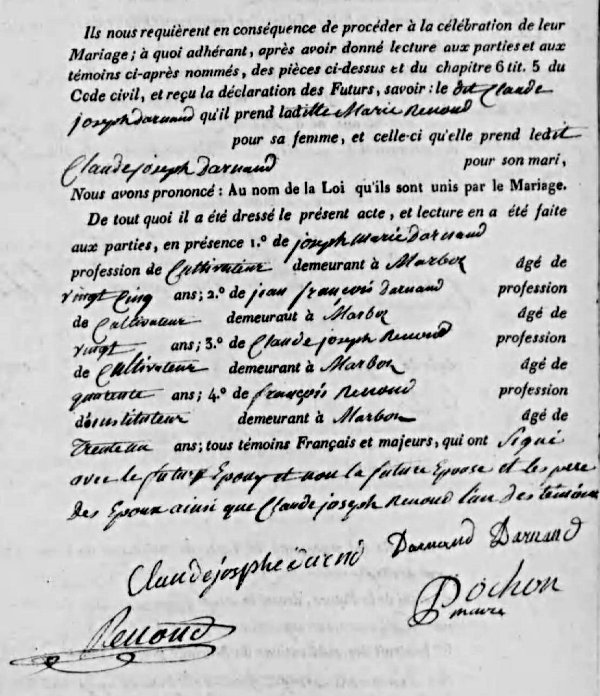 Ils nous requièrent en conséquence de procéder à la célébration de leur
Mariage; à quoi adhérant, après avoir donné lecture aux parties et aux
témoins ci-après nommés, des pièces ci-dessus et du chapitre 6 tit. 5 du
Code civil, et reçu la déclaration des Futurs, savoir: le dit Claude
joseph darnand qu'il prend ladite Marie Renoud
pour sa femme, et celle-ci qu'elle prend ledit
Claude joseph darnand pour son mari,
Nous avons prononcé: Au nom de la Loi qu'ils sont unis par le Mariage.
De tout quoi il a été dressé le présent acte, et lecture en a été faite
aux parties, en présence 1.º de joseph marie darnand
profession de Cultivateur demeurant à Marboz âgé de
vingt Cinq ans; 2.º de jean françois darnand profession
de Cultivateur demeurant à Marboz âgé de
vingt ans; 3.º de Claude joseph Renoud profession
de Cultivateur demeurant à Marboz âgé de
quarente ans; 4.º de françois Renoud profession
d'instituteur demeurant à Marboz âgé de
trente un ans; tous témoins Français et majeurs, qui ont Signé
avec le futur Epoux et non la future Epoose et les pere
des Epoux ainsi que Claude joseph Renoud l'un des témoins
Claude josphe Darnand Darnand
Renoud Pochon
maire